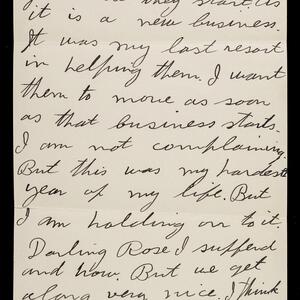 they start. As
it is a new business.
It was my last resort
in helping them. I want
them to move as soon
as that business starts.
I am not complaining.
But this was my hardest
year of my life. But
I am holding on to it.
Darling Rose I sufferd
and how. But we get
along very nice. I think